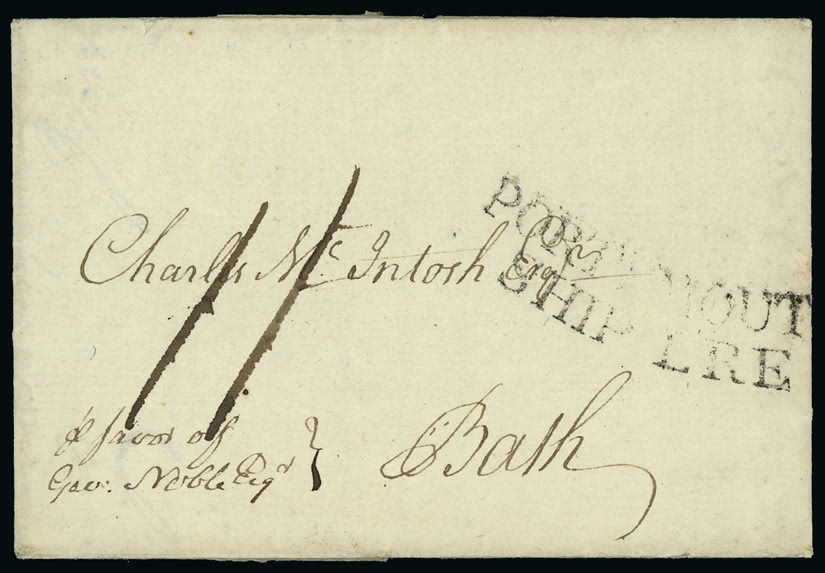 PORTSMOUTH
SHIP LRE
11
Charles Mc Intosh Esqr
Bath
⅌ favor off
Noble Esqr